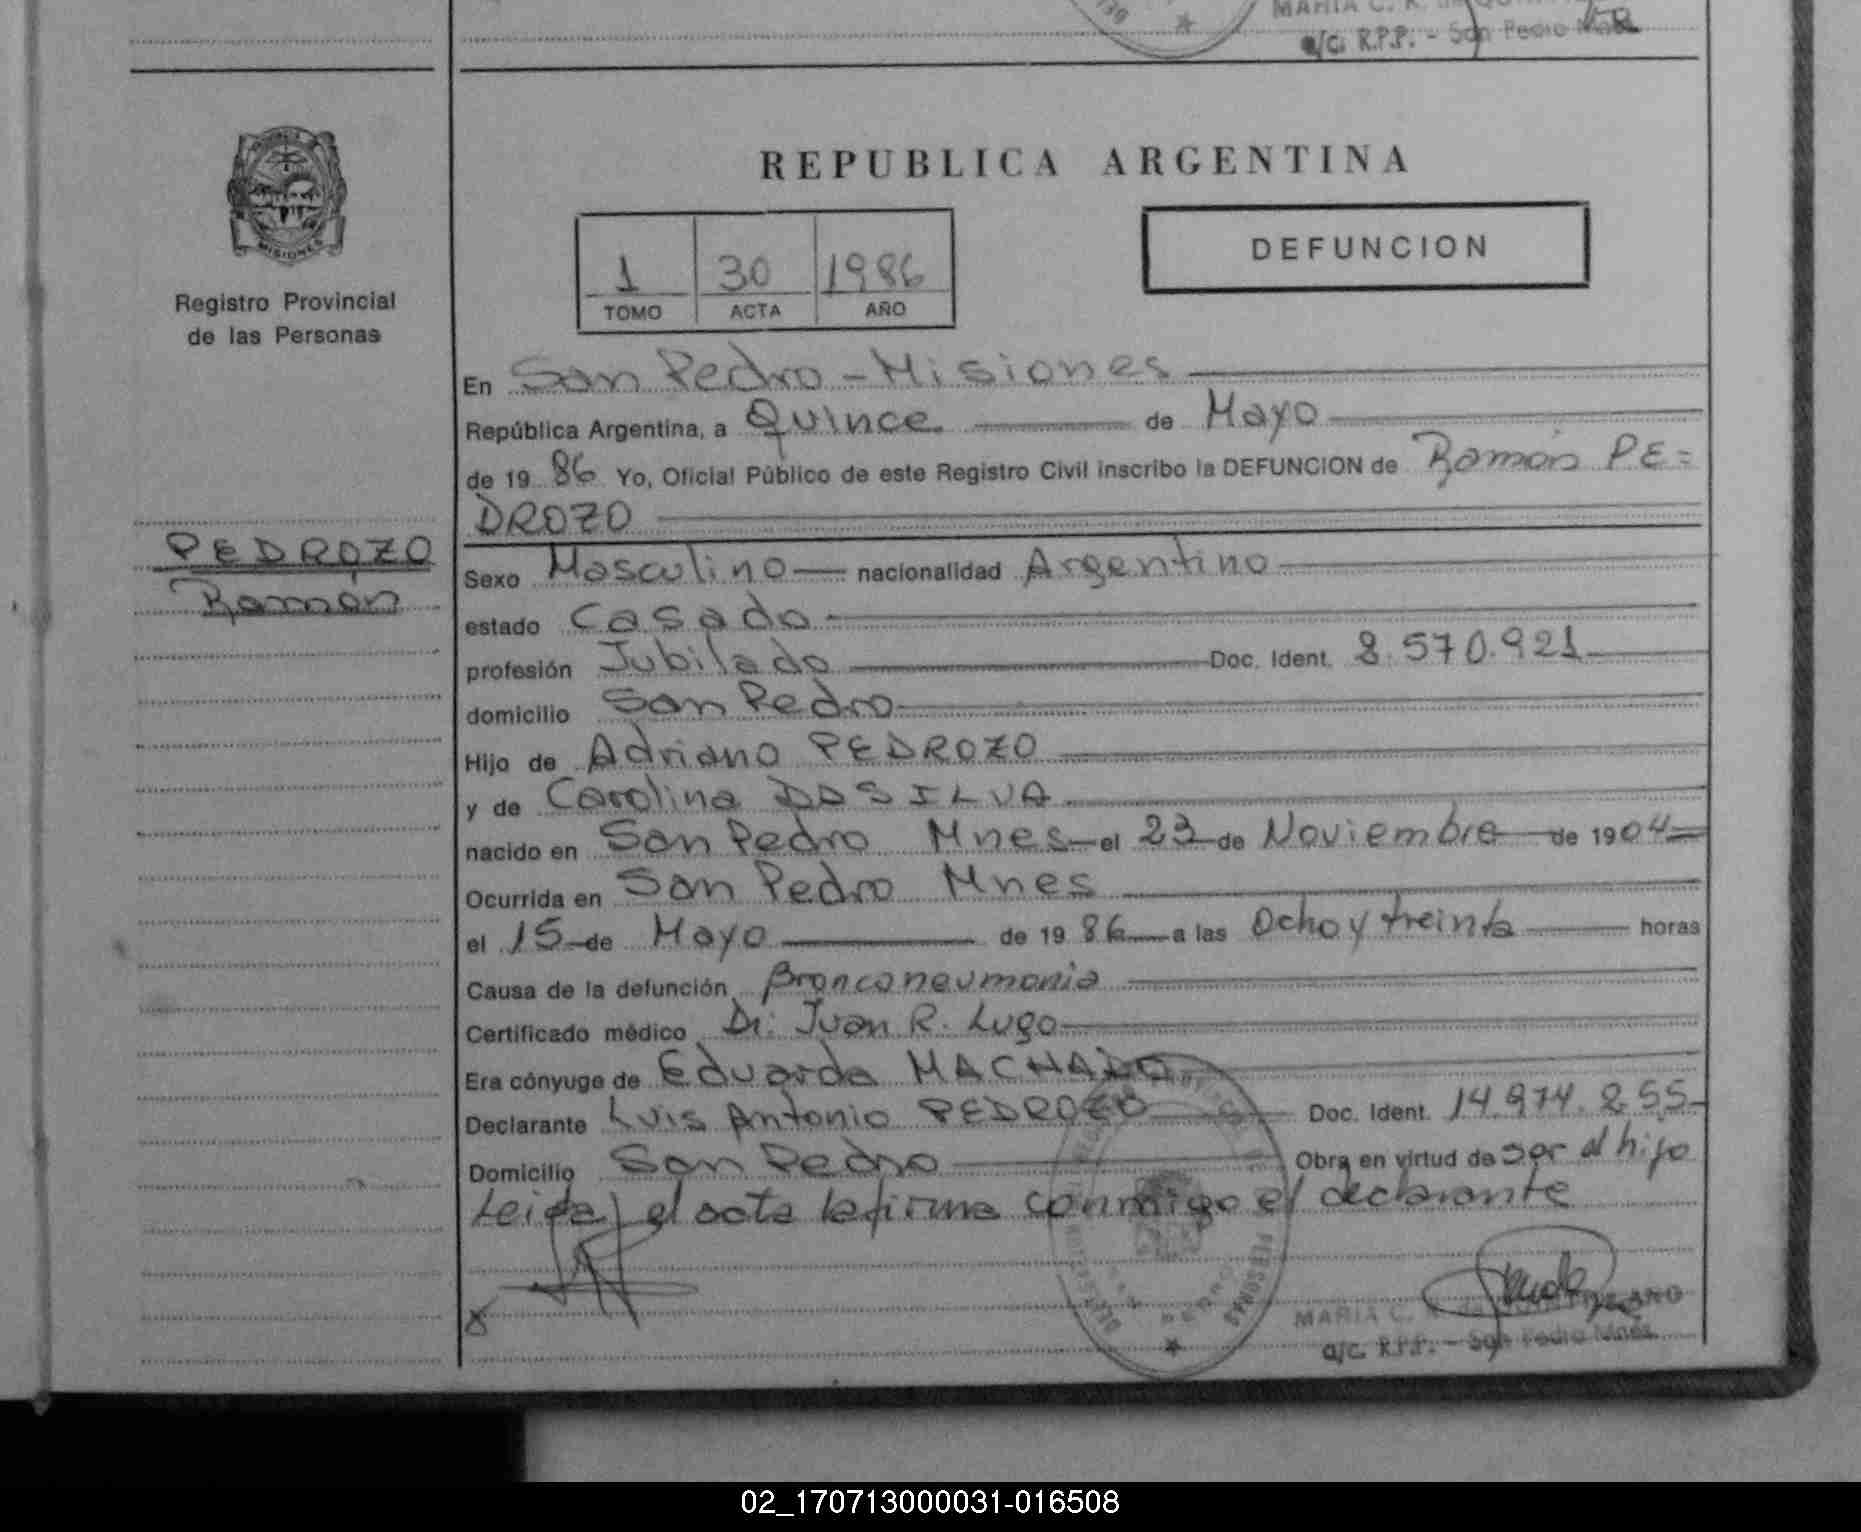 MARIA C.
a/c. R.P.P. - San Pedro Mnes
MISIONES
Registro Provincial
de las Personas
REPUBLICA ARGENTINA
1 30 1986
TOMO ACTA AÑO
DEFUNCION
En San Pedro - Misiones
República Argentina, a Quince de Mayo
de 19 86 Yo, Oficial Público de este Registro Civil inscribo la DEFUNCION de Ramón PE=
DROZO
PEDROZO
Ramón
Sexo Masculino nacionalidad Argentino
estado Casado
profesión Jubilado Doc. Ident. 8.570.921
domicilio San Pedro
Hijo de Adriano PEDROZO
y de Carolina DA SILVA
nacido en San Pedro Mnes el 23 de Noviembre de 1904=
Ocurrida en San Pedro Mnes
el 15 de Mayo de 19 86 a las Ocho y treinta horas
Causa de la defunción Bronconeumonia
Certificado médico Dr. Juan R. Lugo
Era cónyuge de Eduarda MACHADO
Declarante Luis Antonio PEDROZO Doc. Ident. 14.974.255
Domicilio San Pedro Obra en virtud de ser el hijo
Leida el acta la firma conmigo el declarante
MARIA C.
a/c. R.P.P. - San Pedro Mnes.
02_170713000031-016508